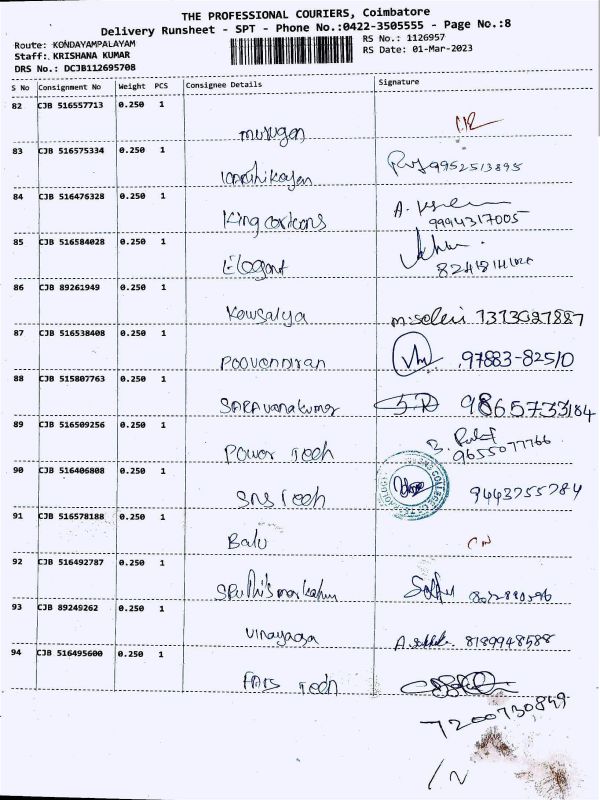 THE PROFESSIONAL COURIERS, Coimbatore
Delivery Runsheet - SPT - Phone No.:0422-3505555 - Page No.:8
Route: KONDAYAMPALAYAM RS No.: 1126957
Staff: KRISHANA KUMAR RS Date: 01-Mar-2023
DRS No.: DCJB112695708
S No Consignment No Weight PCS Consignee Details Signature
82 CJB 516557713 0.250 1
murugan
83 CJB 516575334 0.250 1
9952513895
84 CJB 516476328 0.250 1
King
9994317005
85 CJB 516584028 0.250 1
Elegant
86 CJB 89261949 0.250 1
Kowsalya
87 CJB 516538408 0.250 1
97883-82510
88 CJB 515807763 0.250 1
SARavanakumar 9865733184
89 CJB 516509256 0.250 1
Power Tech 9655077766
90 CJB 516406808 0.250 1
SNS Tech 9443755784
91 CJB 516578188 0.250 1
Balu
92 CJB 516492787 0.250 1
93 CJB 89249262 0.250 1
Vinayaga 8189948588
94 CJB 516495600 0.250 1
Tech
7200730849